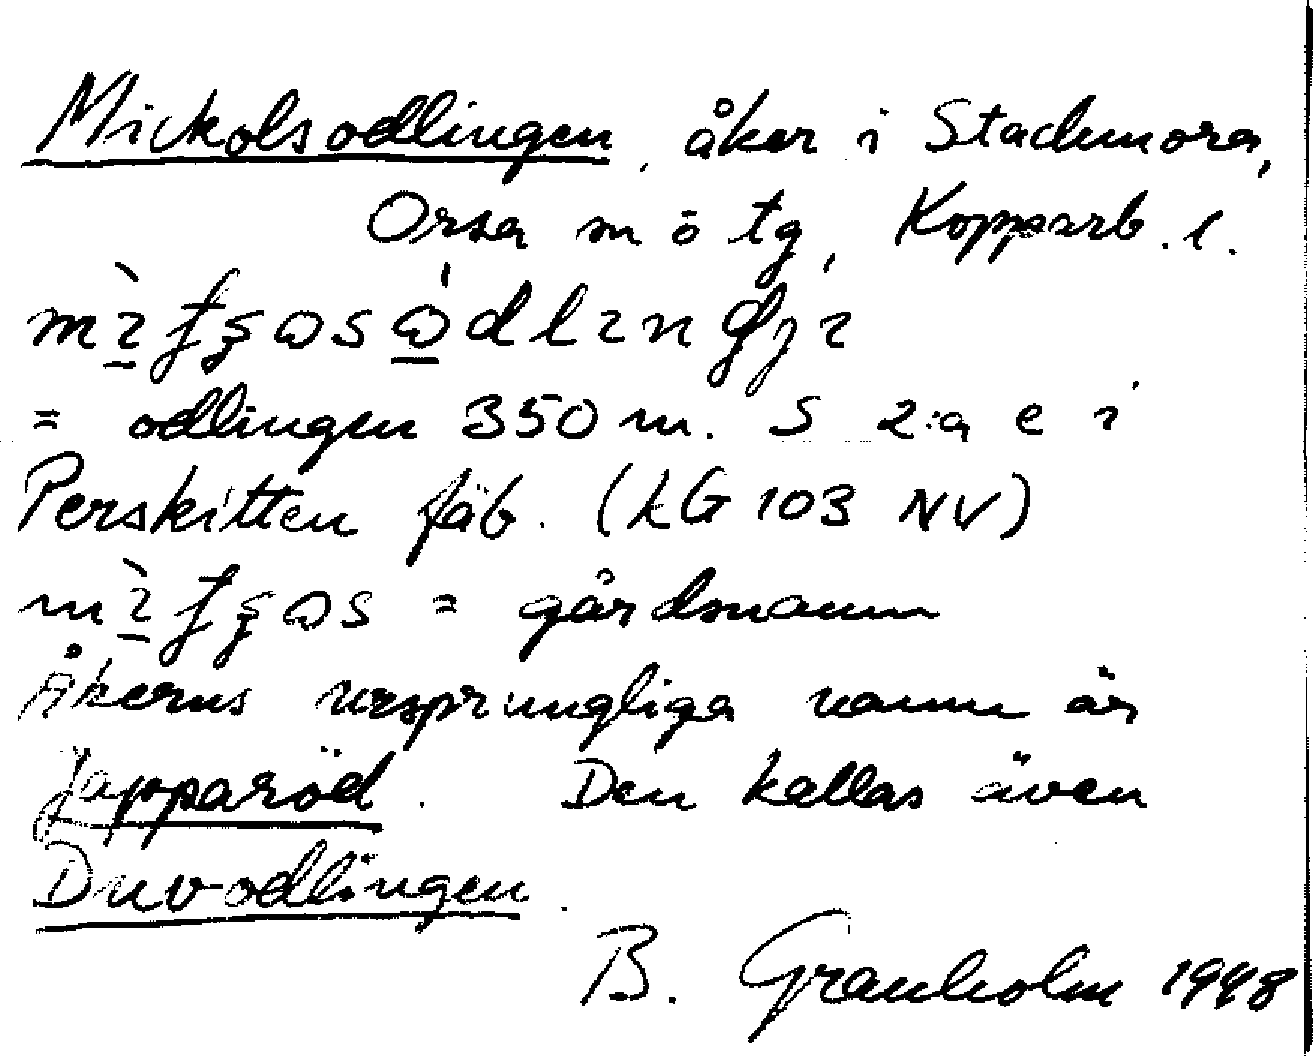 Mickolsodlingen, åker i Stackmora,
Orsa m o tg, Kopparb. l.
= odlingen 350 m. S 2:a e i
Perskitten fäb. (LG 103 NV)
= gårdsnamn
Åkerns ursprungliga namn är
Japparöd. Den kallas även
Duvodlingen.
B. Granholm 1948